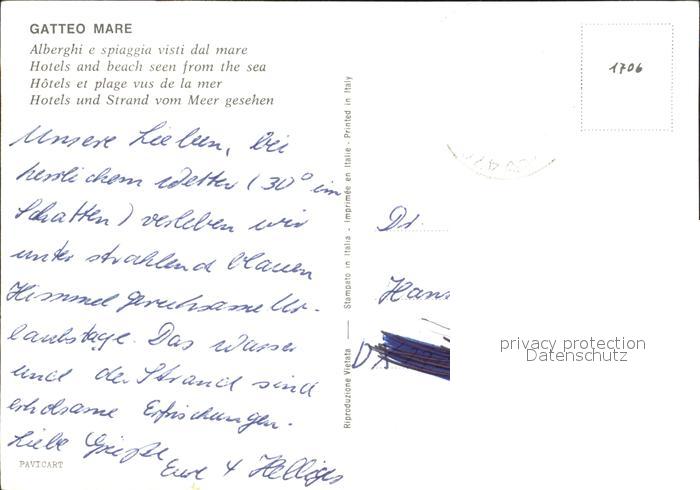 GATTEO MARE
Alberghi e spiaggia visti dal mare
Hotels and beach seen from the sea
Hôtels et plage vus de la mer
Hotels und Strand vom Meer gesehen
Unsere Lieben, bei
herrlichem Wetter (30° im
Schatten) verleben wir
unter strahlend blauen
Himmel geruhsame Ur-
laubstage. Das Wasser
und der Strand sind
erholsame Erfrischungen.
Liebe Grüße
Eure 4
PAVICART
Riproduzione Vietata — Stampato in Italia - Imprimée en Italie - Printed in Italy
1706
Dr.
Hans
privacy protection
Datenschutz